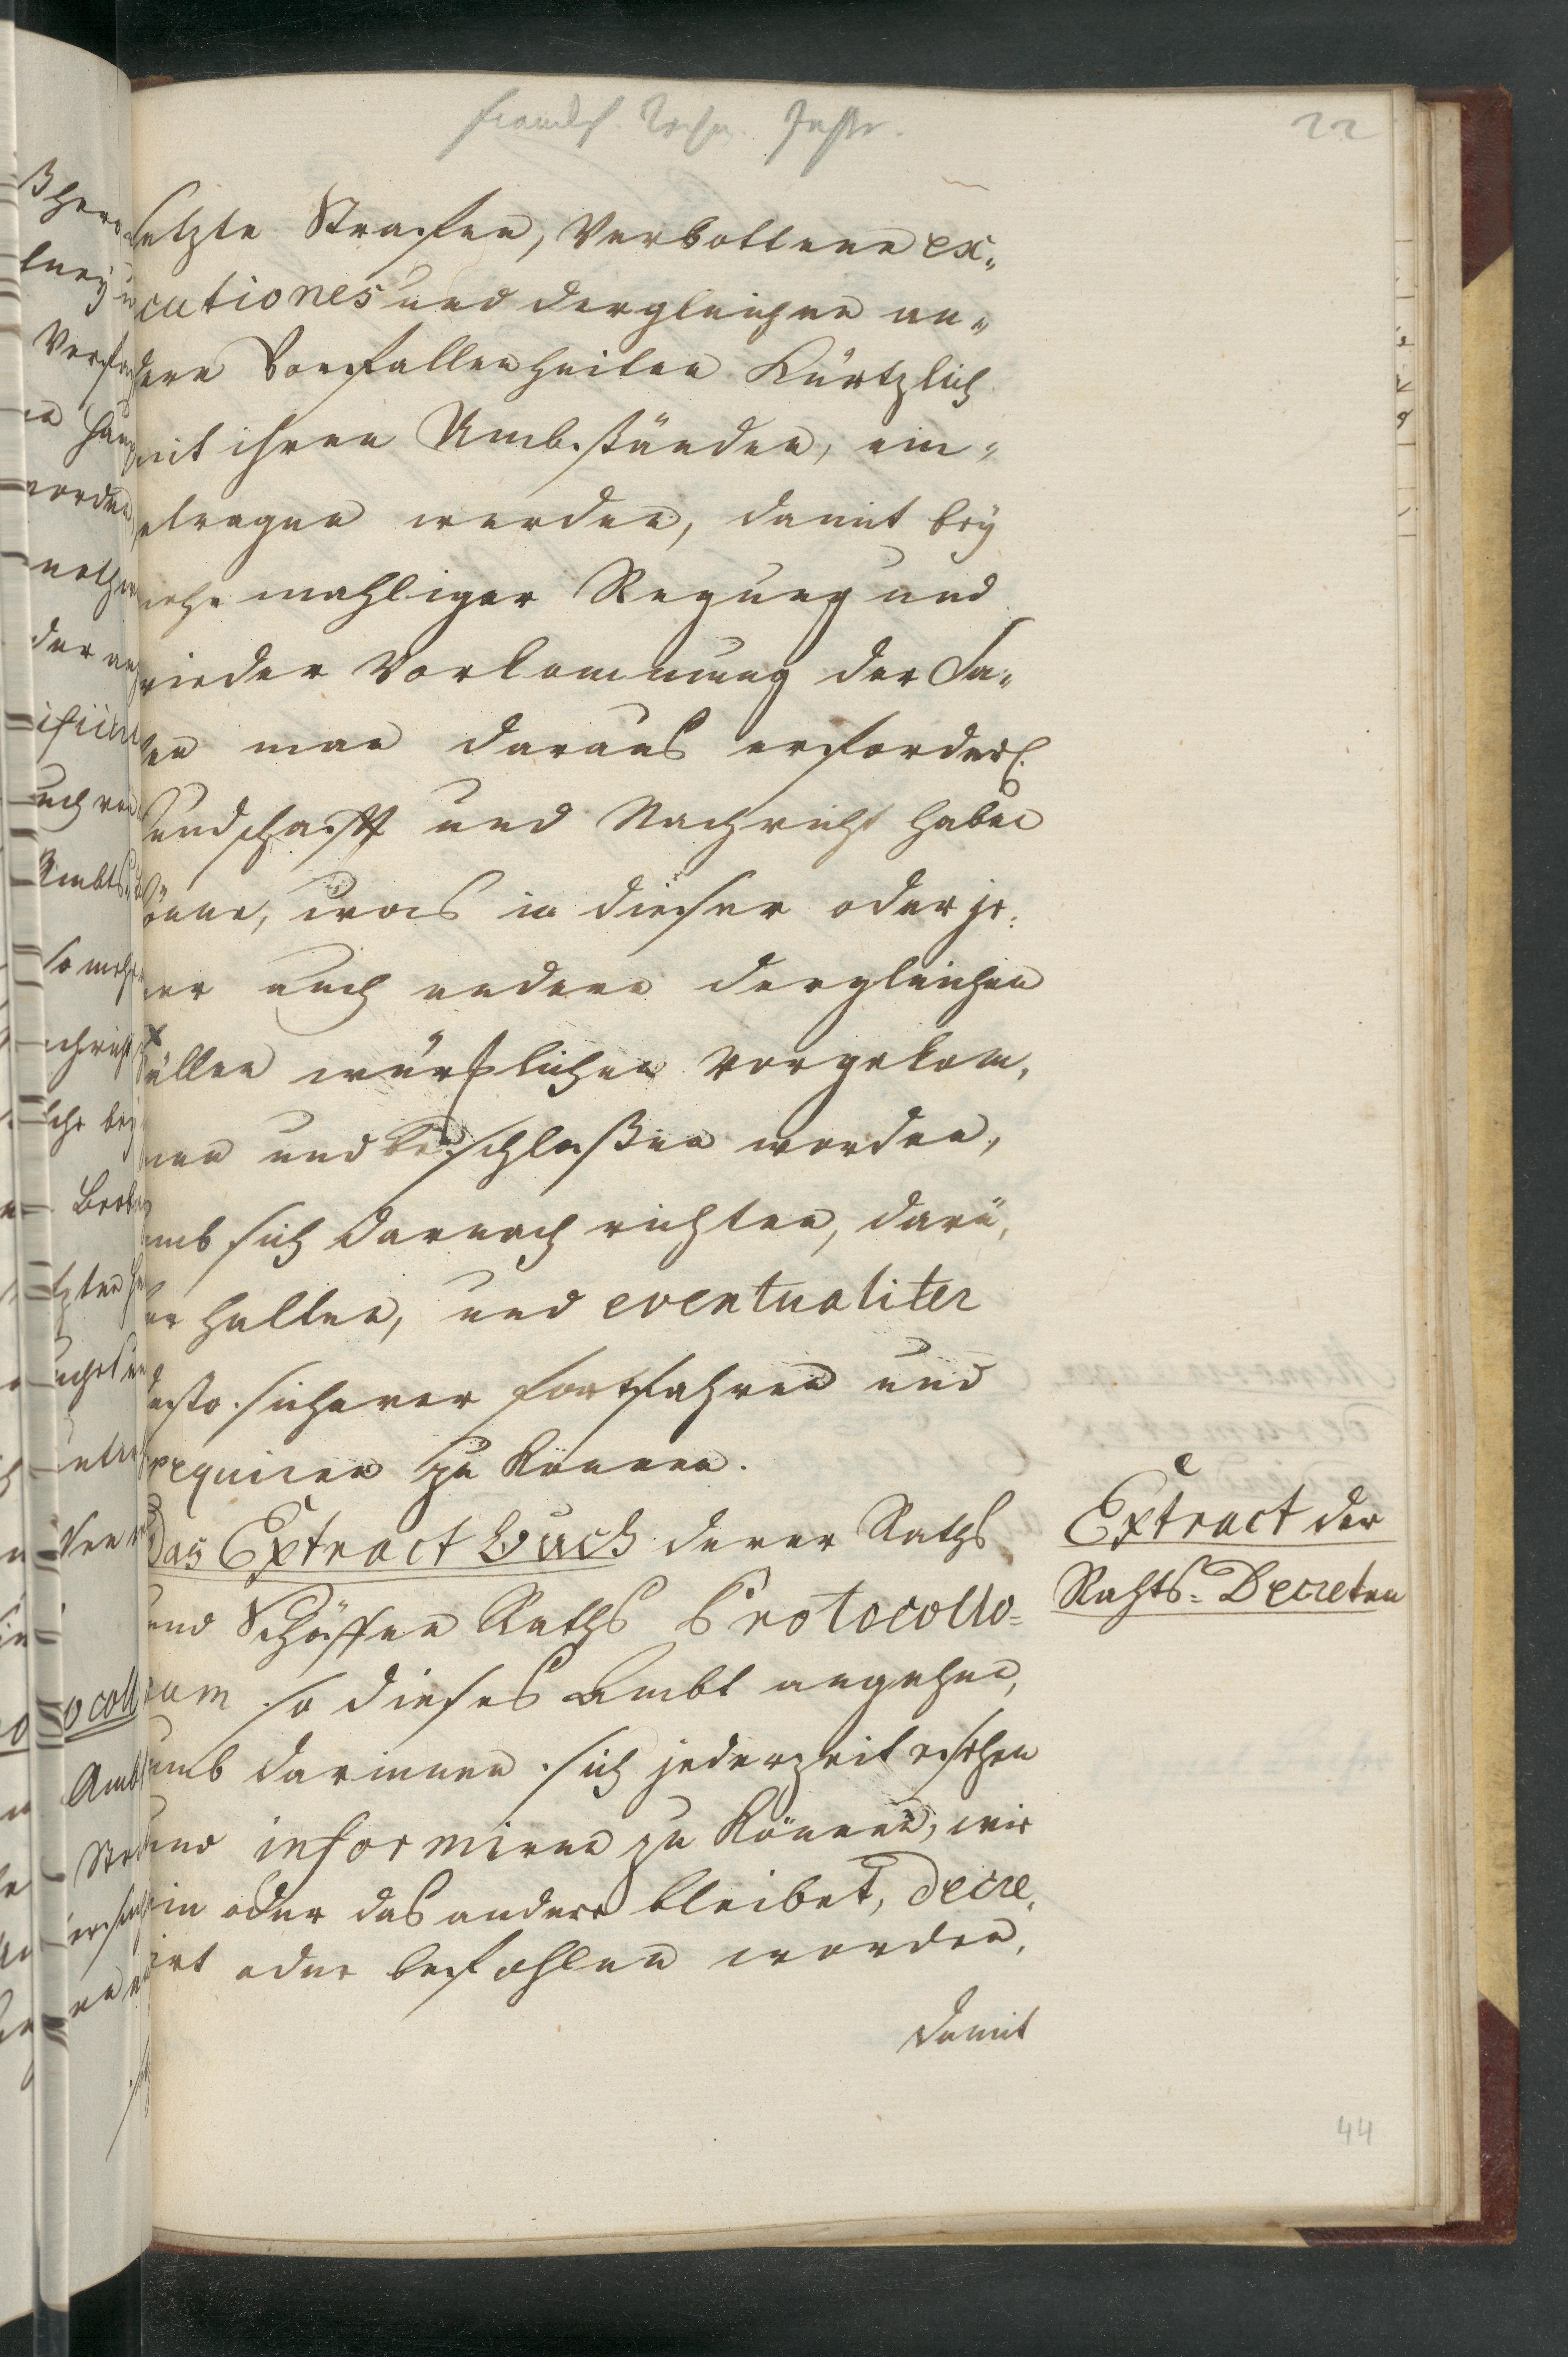 22
setzte Straffen, Verbottene ex„
cutiones und dergleichen an„
dere Vorfallenheiten Kürtzlich
mit ihren Umbständen, ein„
etragen werden, damit bey
mehrmahliger Regung und
wieder Vorkommung der Sa„
en man daraus erforderl.
undschafft und Nachricht haben
önne, was in dieser oder je„
ner auch andern dergleichen
ällen würcklichen vorgekom„
men und beschlossen worden,
umb sich darnach richten, darü„
er halten, und eventualiter
desto sicherer fortfahren und
exequiren zu können.
Das Extract Buch derer Raths
und Schöffen Raths Protocollo=
rum so dieses Ambt angehen,
umb darinnen sich jederzeit ersehen
und informiren zu können, wie
ein oder das andere bleibet, decre„
irt oder befohlen worden,
damit
Extract der
Rahts=Decreten
44